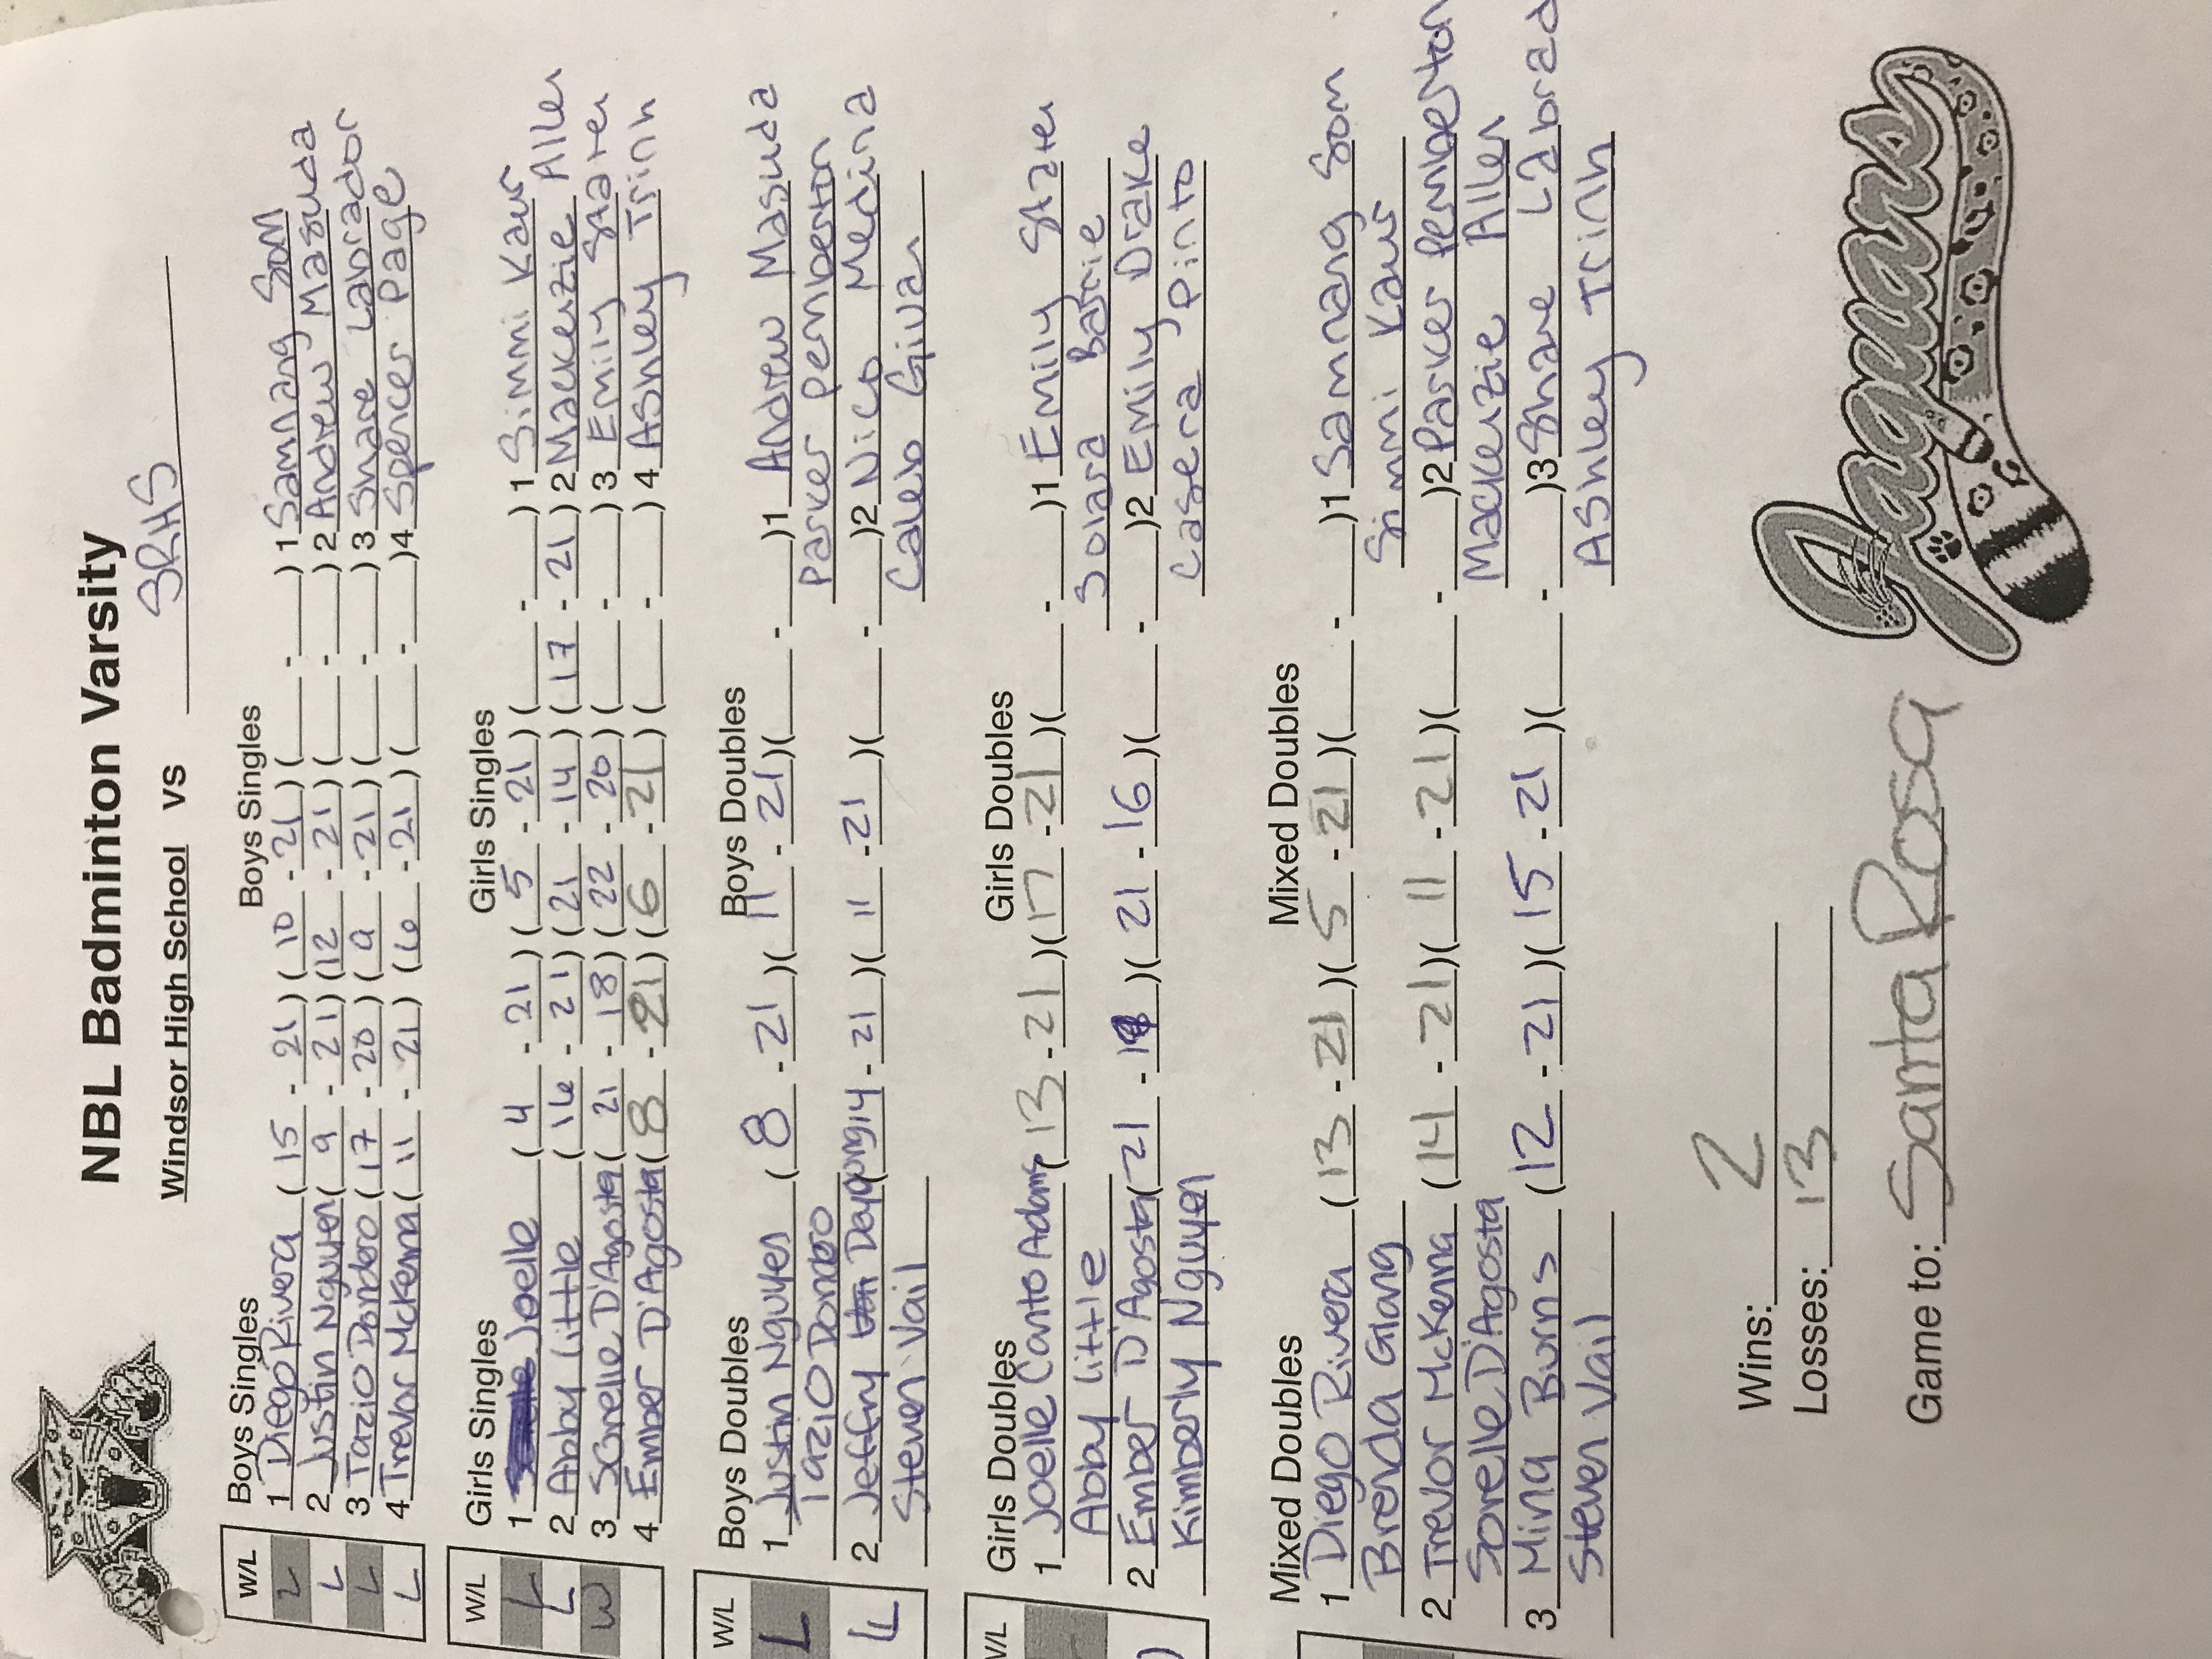 NBL Badminton Varsity
Windsor High School VS SRHS
W/L Boys Singles Boys Singles
L 1 Diego Rivera (15 - 21) (10 - 21) (___ - ___) 1 Samnang Som
L 2 Justin Nguyen (9 - 21) (12 - 21) (___ - ___) 2 Andrew Masuda
L 3 Tazio Dondero (17 - 20) (9 - 21) (___ - ___) 3 Shane Labrador
L 4 Trevor McKenna (11 - 21) (16 - 21) (___ - ___) 4 Spencer Page
W/L Girls Singles Girls Singles
L 1 Joelle (4 - 21) (5 - 21) (___ - ___) 1 Simmi Kaur
L 2 Abby Little (16 - 21) (21 - 14) (17 - 21) 2 Mackenzie Allen
W 3 Sorelle D'Agosta (21 - 18) (22 - 20) (___ - ___) 3 Emily Stater
4 Ember D'Agosta (8 - 21) (6 - 21) (___ - ___) 4 Ashley Trinh
W/L Boys Doubles Boys Doubles
L 1 Justin Nguyen (8 - 21) (11 - 21) (___ - ___) 1 Andrew Masuda
Tazio Dondero Parker Pemberton
L 2 Jeffry (14 - 21) (11 - 21) (___ - ___) 2 Nico Medina
Steven Vail Caleb Givan
W/L Girls Doubles Girls Doubles
1 Joelle Canto Adams (13 - 21) (17 - 21) (___ - ___) 1 Emily Stater
Abby Little Solara Barrie
2 Ember D'Agosta (21 - ) (21 - 16) (___ - ___) 2 Emily Drake
Kimberly Nguyen Casera Pinto
Mixed Doubles Mixed Doubles
1 Diego Rivera (13 - 21) (5 - 21) (___ - ___) 1 Samnang Som
Brenda Giang Simmi Kaur
2 Trevor McKenna (14 - 21) (11 - 21) (___ - ___) 2 Parker Pemberton
Sorelle D'Agosta Mackenzie Allen
3 Mina Burns (12 - 21) (15 - 21) (___ - ___) 3 Shane Labrad
Steven Vail Ashley Trinh
Wins: 2
Losses: 13
Game to: Santa Rosa
Jaguars